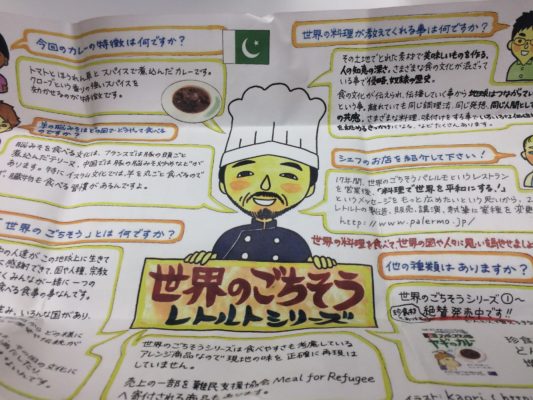 今回のカレーの特徴は何ですか？
トマトとほうれん草とスパイスで煮込んだカレーです。
クローブという香りの強いスパイスを
きかせるのが特徴です。
世界の料理が教えてくれる事は何ですか？
その土地でとれた素材で美味しいものを作る、
人の知恵の深さ。さまざまな食の文化が混ざって
いる事で侵略、奴隷の歴史。
食の文化が伝えられ、伝播していく事から地球はつながって
という事。離れていても同じ調理法、同じ発想、同じ人間として
の共感。さまざまな料理、味付けをする事で
羊の脳みそはどの国で、どうやって食べる
のですか？
脳みそを食べる文化は、フランスでは豚の目玉ごと
煮込んだテリーヌ、中国では豚の脳みそ炒めなどが
あります。特にイスラム文化では、羊を丸ごと食べるので
臓物も食べる習慣があるんですよ。
シェフのお店を紹介して下さい！
17年間、世界のごちそうパルレモというレストラン
を営業後、「料理で世界を平和にする！」
というメッセージをもっと広めたいという思いから、
レトルトの製造、販売、講演、執筆に業種を変更
http://www.palermo.jp/
世界の料理を食べて、世界の国や人々に思いを馳せましょ
「世界のごちそう」とは何ですか？
の人達がこの地球上に生きて
に感謝できて、国や人種、宗教
くみんなが一緒に一つの
べる食事の事なんです。
世界のごちそう
レトルトシリーズ
他の種類はありますか？
世界のごちそうシリーズ①〜
絶賛発売中です!!
世界のごちそうシリーズは食べやすさも考慮している
アレンジ商品なので現地の味を正確に再現は
していません。
売上の一部を難民支援協会Meal for Refugee
へ寄付される商品もあります。
イラスト：Kaori